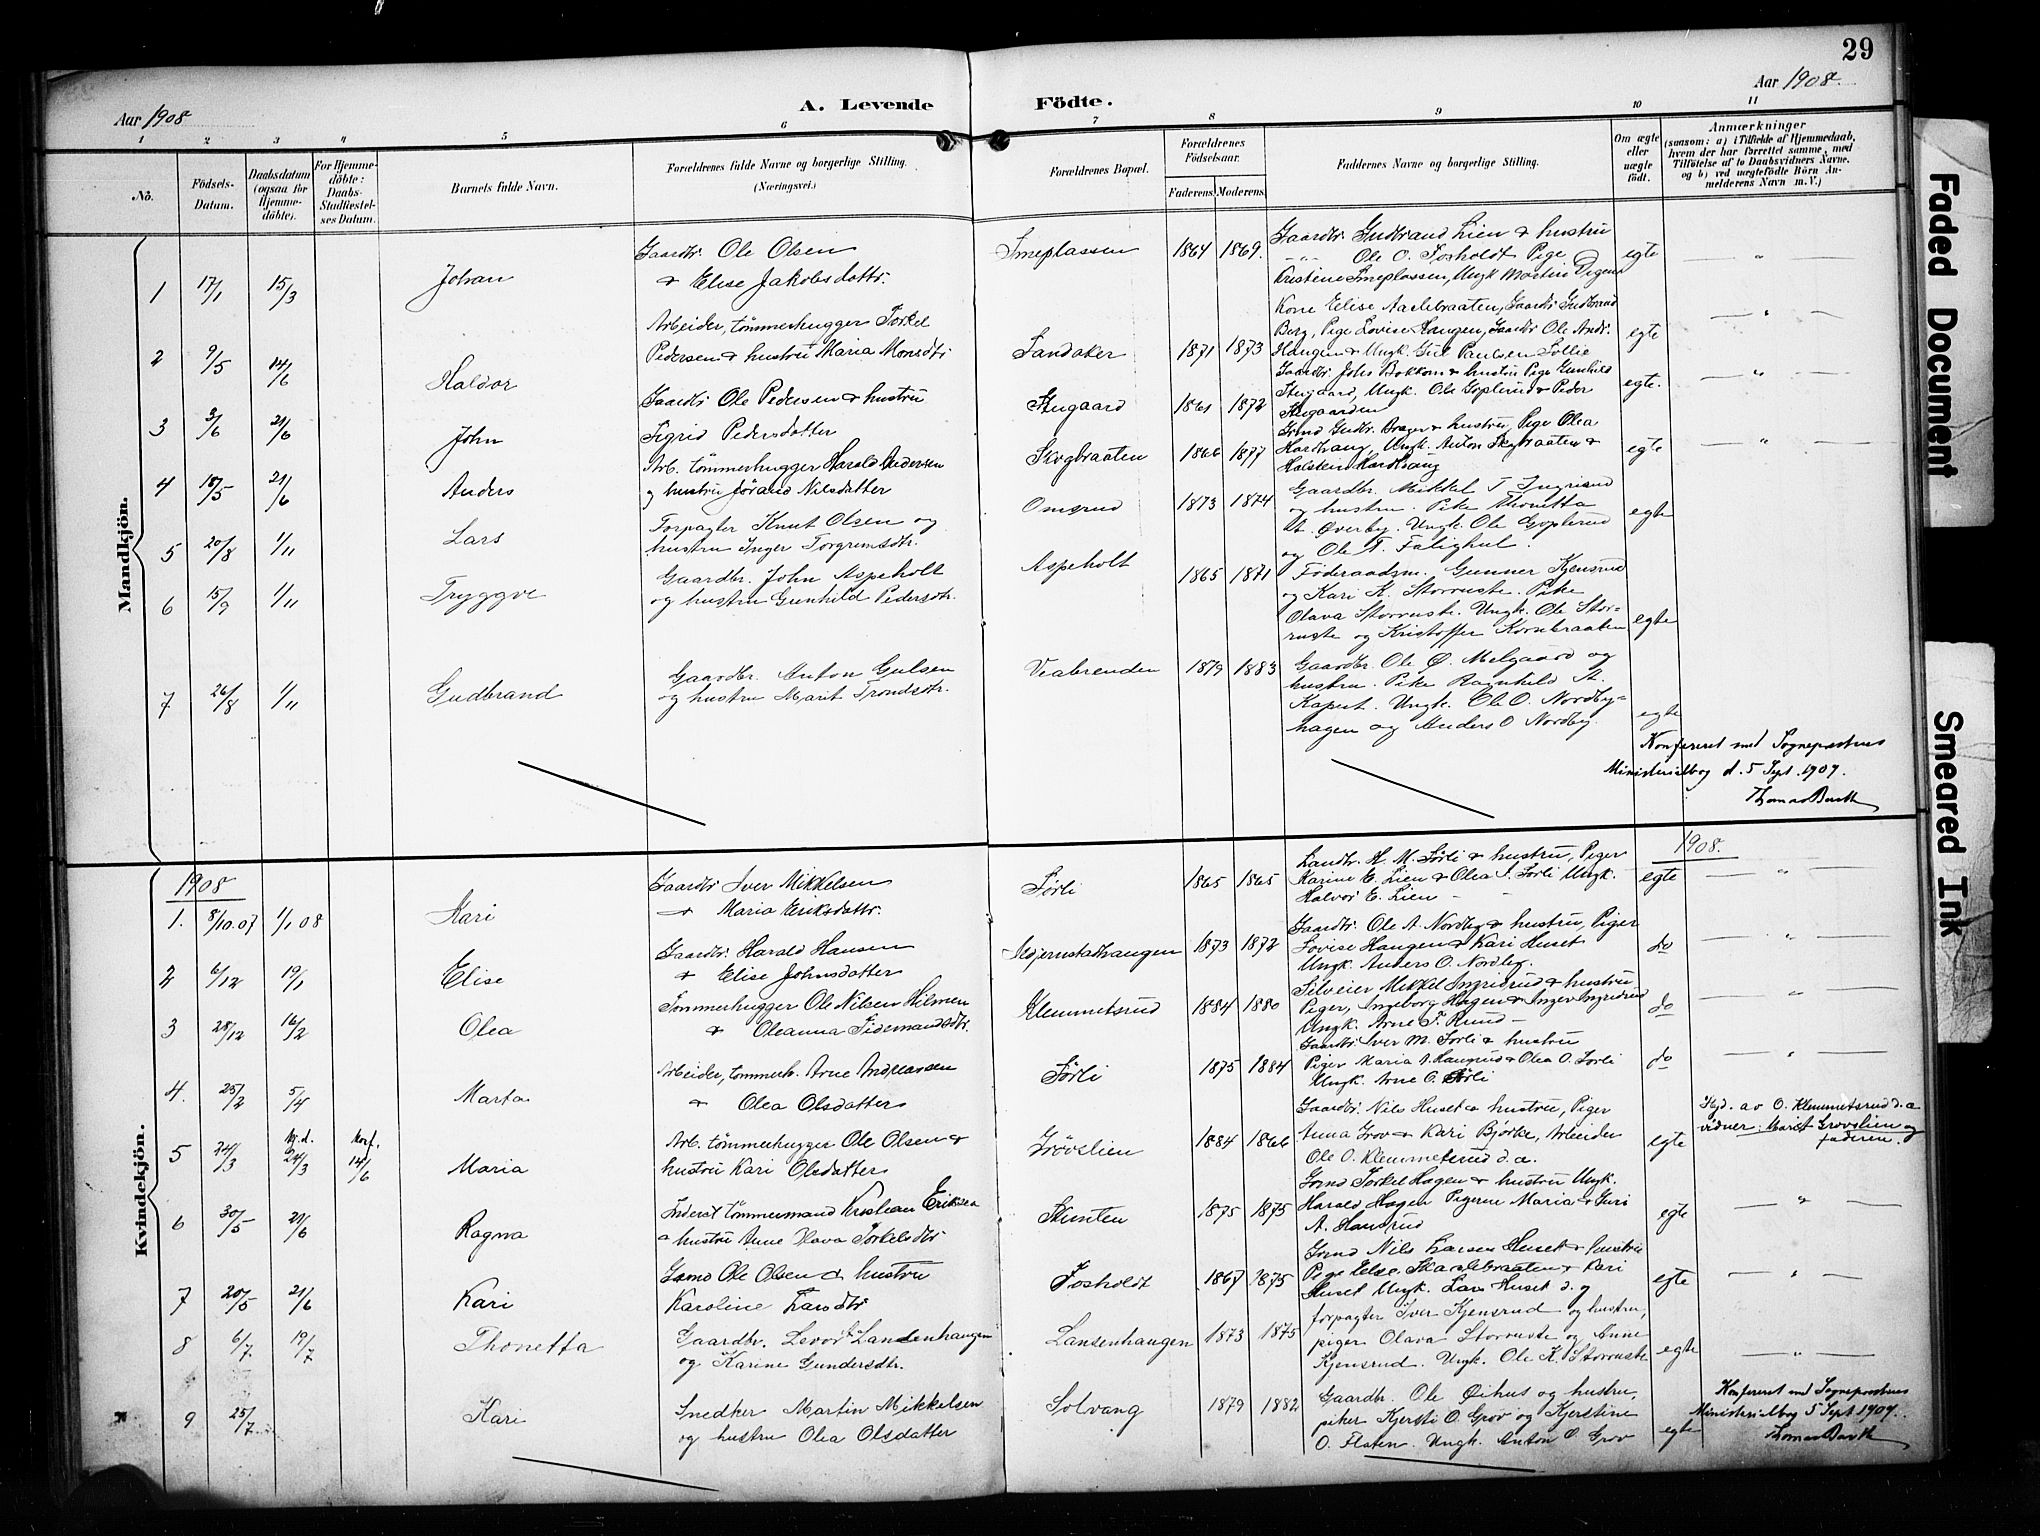 29
Aar 1908
A. Levende Födte.
Aar 1908.
1 2 3 4 5 6 7 8 9 10 11
No.
Födsels-Datum.
Daabsdatum (ogsaa for Hjemme-döbte).
For Hjemme-döbte: Daabs-Stadfæstel-ses Datum.
Barnets fulde Navn.
Forældrenes fulde Navne og borgerlige Stilling.
(Næringsvei.)
Forældrenes Bopæl.
Forældrenes Födselsaar.
Faderens. Moderens.
Faddernes Navne og borgerlige Stilling.
Om ægte eller uægte födt.
Anmærkninger
(saasom: a) i Tilfælde af Hjemmedaab, hvem der har forrettet samme, med Tilföielse af to Daabsvidners Navne. og b) ved uægtefödte Börn An-melderens Navn m. V.)
Mandkjön.
1 17/1 15/3 Johan
Gaardbr. Ole Olsen
& Elise Jakobsdattr.
Smeplassen 1864 1869.
Gaardbr. Gudbrand Lien & hustru
Ole O. Fosholdt Pige
Kristine Smeplassen, Ungk Martin
egte
2 9/5 14/6 Haldor
Arbeider, tömmerhugger Torkel
Pedersen & hustru Maria Monsdtr
Sandaker 1871 1873
Kone Elise Aaslebraaten, Gaardbr Gudbrand
Berg, Pige Lovise Haugen, Gaardbr Ole Andr.
Haugen & Ungk. Gul Paulsen Sollie
egte
3 3/6 21/6 John
Gaardbr Ole Pedersen & hustru
Sigrid Pedersdatter
Stugaard 1861 1872
Gaardbr Johs Bakken & hustru Pige Gunhild
Stugaard, Ungk. Ole Goplerud & Peder
Stugaarden
egte.
4 18/5 21/6 Anders
Arb. tömmerhugger Harald Andersen
og hustru Jörand Nilsdatter
Skogbraaten 1866 1877
Grmd Gudbr. Brager & hustru, Pige Olea
Hardhaug, Ungk. Anton Skogbraaten &
Halstein Hardhaug
egte
5 20/8 1/11 Lars
Forpagter Knut Olsen og
hustru Inger Torgrimsdtr.
Omsrud 1873 1874
Gaardbr. Mikkel T Ingrisud
og hustru. Pike Thonetta
St. Øverby. Ungk. Ole Goplerud
og Ole T. Falighul.
egte
6 15/9 1/11 Tryggve
Gaardbr. John Aspeholt
og hustru Gunhild Pedersdtr.
Aspeholt 1865 1871
Føderaadsm. Gunner Kjensrud
og Kari K. Storruste. Pike
Olava Storruste. Ungk. Ole Stor-
ruste og Kristoffer Kornbraaten
egte
7 26/8 1/11 Gudbrand
Gaardbr. Anton Gulsen
og hustru Marit Trondsdtr.
Veabrenden 1879 1883
Gaardbr. Ole Ø. Melgaard og
hustru. Pike Ragnhild St.
Kapert. Ungk. Ole O. Nordby-
hagen og Anders O Nordby.
egte
Konfereret med Sogneprestens
Ministerialbog d. 5 Sept. 1909.
Thomas Barth
Kvindekjön.
1908 1908.
1. 8/10.07 1/1 08 Kari
Gaardbr Iver Mikkelsen
& Maria Eriksdattr.
Sørli 1865 1865
Landbr. H. M. Sørli & hustru, Piger
Karine E. Lien & Olea I. Sørli Ungk.
Halvor E. Lien
egte
2 6/12 19/1 Elise
Gaardbr. Harald Hansen
& Elise Johnsdatter
Skjerustadhaugen 1873 1872
Gaardbr. Ole A. Nordby & hustru, Piger
Lovise Haugen & Kari Huset
Ungk. Anders O. Nordby.
do
3 28/12 16/2 Olea
Tommerhugger Ole Nilsen Hilmen
& Oleanna Tidemandsdtr.
Klemmetsrud 1884 1880
Selveier Mikkel Ingridrud & hustru
Piger, Ingeborg Hagen & Inger Ingridrud
Ungk. Arne T. Ruud
do
4. 25/2 5/4 Marta
Arbeider, tommerh. Arne Andreassen
& Olea Olsdatter
Sørli 1875 1884
Gaardbr. Iver M. Sørli & hustru
Piger Maria A. Haugrud & Olea O. Sørli
Ungk. Arne O. Sørli
do
5 24/3 Hj.d. 24/3 Konf. 14/6 Maria
Arb. tömmerhugger Ole Olsen &
hustru Kari Olsdatter
Grøvslien 1884 1866
Gaardbr. Nils Huset & hustru, Piger
Anna Grov & Kari Bjørke, Arbeider
Ole O. Klemmetsrud d. æ.
egte
Hjd. av O. Klemmetsrud d. æ
vidner: Marit Grovslien og
faderen.
6 30/5 21/6 Ragna
Inderst tömmermand Kristian Eriksen
& hustru Anne Olava Torkelsdtr
Stunten 1875 1875
Grmd Torkel Hagen & hustru Ungk.
Harald Hagen Pigerne Maria & Guri
A. Haugrud
egte
7 20/5 21/6 Kari
Grmd Ole Olsen & hustru
Karoline Larsdtr
Fosholdt 1867 1875
Grmd Nils Larsen Huset & hustru
Pige Else Skaslebraaten & Kari
Huset Ungk. Lars Huset d. y
egte
8 6/7 19/7 Thonetta
Gaardbr. Levor L. Landenhaugen
og Karine Gundersdtr.
Lansenhaugen 1873 1875
forpagter Iver Kjensrud og hustru,
piger Olava Storruste og Anne
Kjensrud. Ungk. Ole K. Storruste
egte
9 25/7 Kari
Snedker Martin Mikkelsen
og hustru Olea Olsdatter
Solvang 1879 1882
Gaardbr. Ole Øihus og hustru,
piker Kjersti O. Grov og Kjerstine
O. Flaten. Ungk. Anton O. Grov
egte
Konfereret med Sogneprestens
Ministerialbog 5 Sept 1909.
Thomas Barth
Faded Document
Smeared Ink